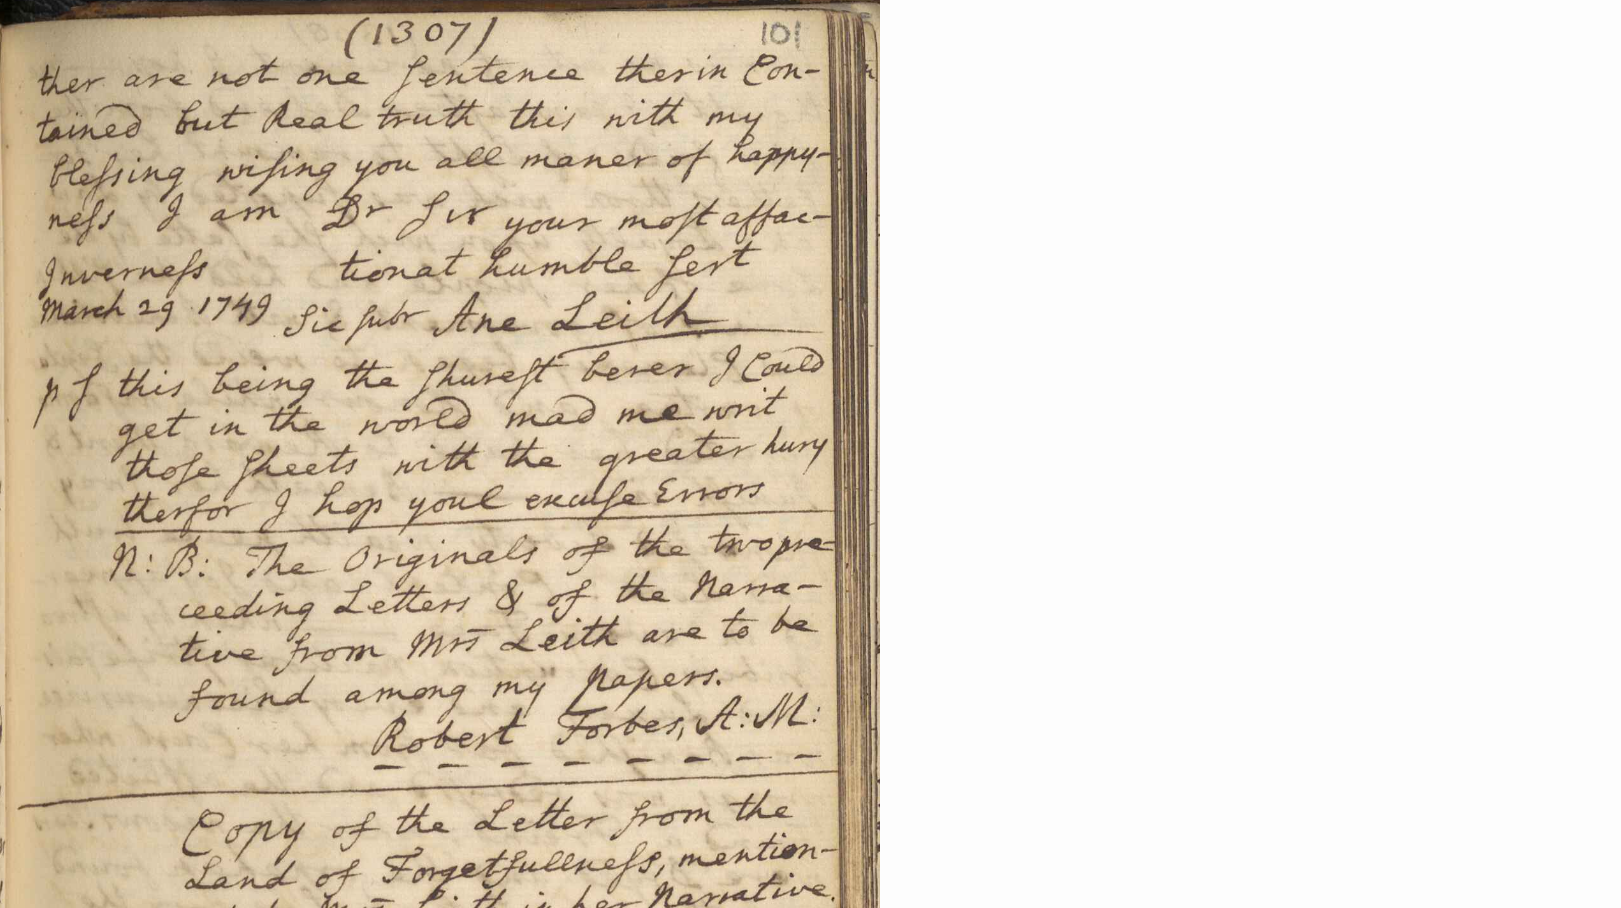 (1307) 101
ther are not one sentence therin Con-
tained but Real truth this with my
blessing wising you all maner of happy-
ness I am Dr Sir your most affac-
Inverness tionat humble sert
March 29 1749 Sic subr Ane Leith
p S this being the shurest berer I Could
get in the world mad me writ
those sheets with the greater hury
therfor I hop youl excuse Errors
N: B: The Originals of the two pre-
ceeding Letters & of the Narra-
tive from Mrs Leith are to be
found among my Papers.
Robert Forbes, A: M:
Copy of the Letter from the
Land of Forgetfullness, mention-
Mrs Leith in her Narrative.